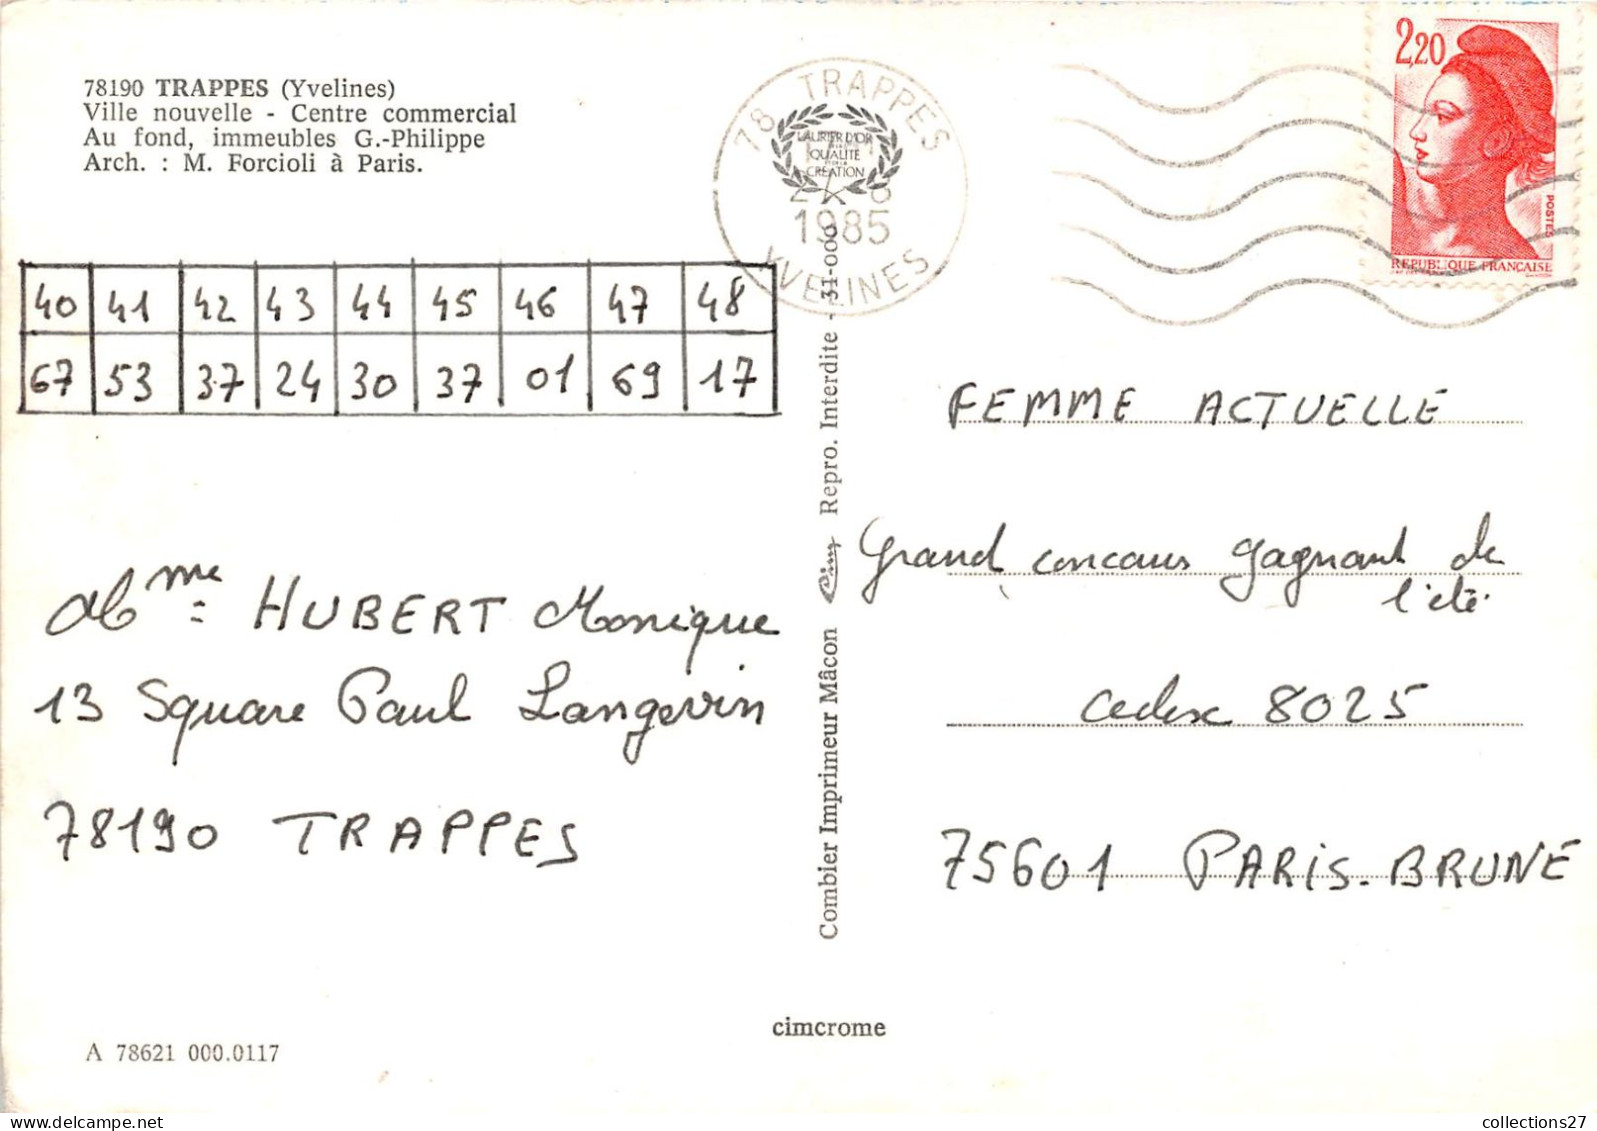 78190 TRAPPES (Yvelines)
Ville nouvelle - Centre commercial
Au fond, immeubles G.-Philippe
Arch. : M. Forcioli à Paris.
40 41 42 43 44 45 46 47 48
67 53 37 24 30 37 01 69 17
Mme HUBERT Monique
13 Square Paul Langevin
78190 TRAPPES
A 78621 000.0117
78 TRAPPES
LAURIER D'OR
QUALITÉ
CRÉATION
1985
YVELINES
Combier Imprimeur Mâcon Cim Repro. Interdite - 31-000
cimcrome
2,20
POSTES
REPUBLIQUE FRANCAISE
FEMME ACTUELLE
Grand concours gagnant de
l'été.
cedex 8025
75601 PARIS-BRUNE
collections27